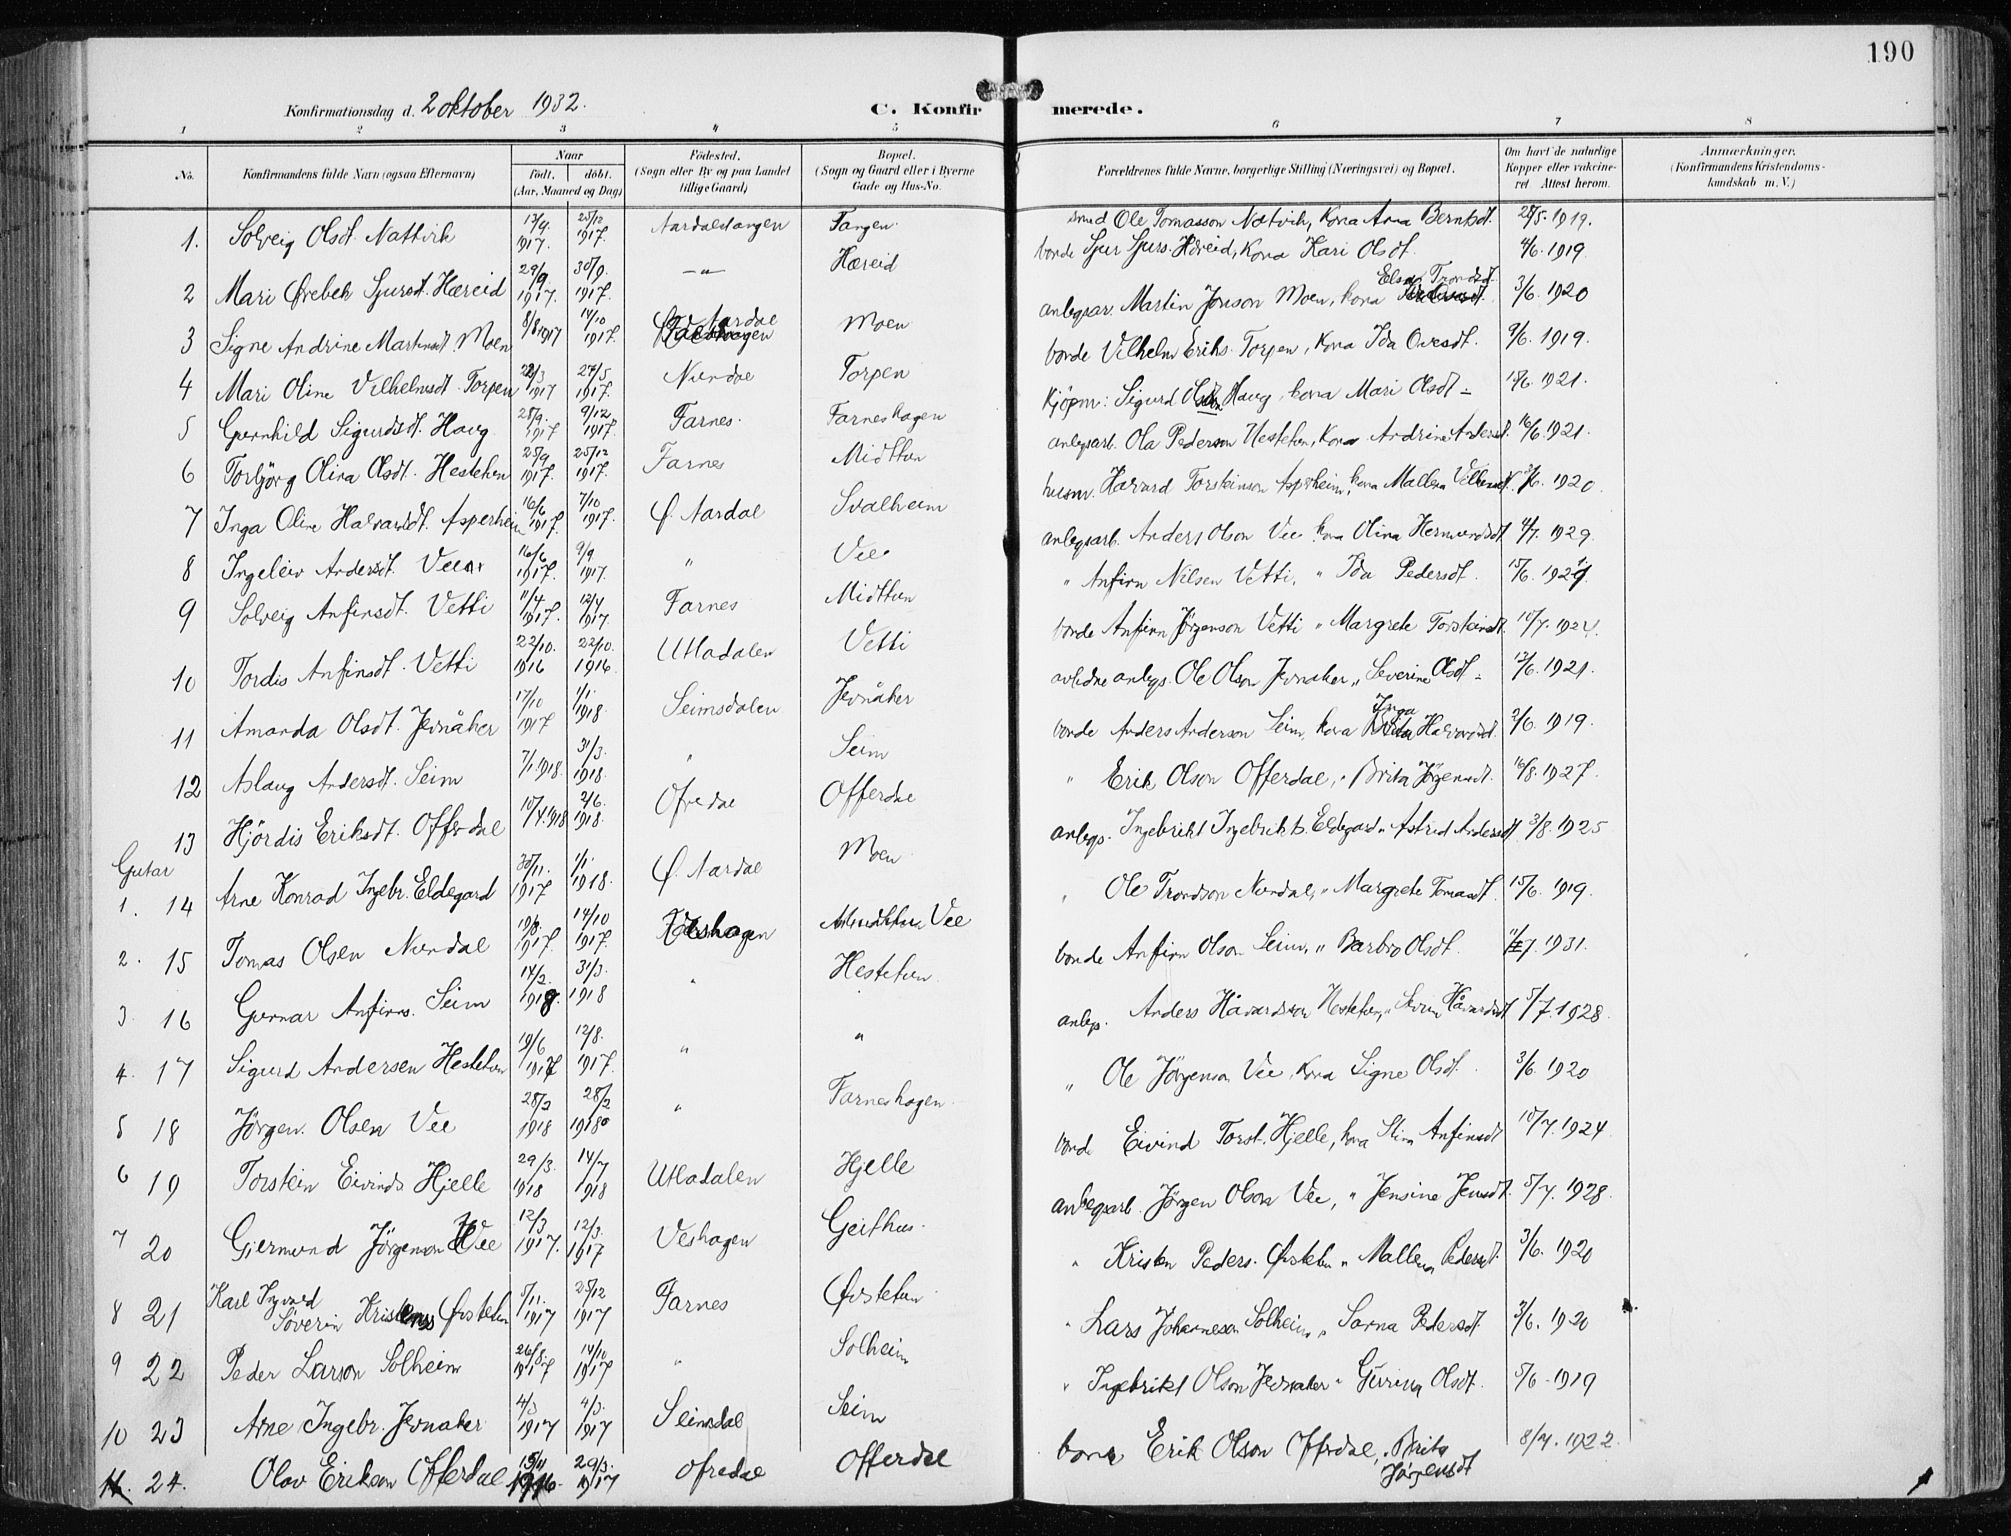 190
Konfirmationsdag d. 2 oktober 1932.
C. Konfirmerede.
1 2 3 4 5 6 7 8
No.
Konfirmandens fulde Navn (ogsaa Efternavn)
Naar
Födt. döbt.
(Aar, Maaned og Dag)
Födested.
(Sogn eller By og paa Landet
tillige Gaard)
Bopæl.
(Sogn og Gaard eller i Byerne
Gade og Hus-No.
Forældrenes fulde Navne, borgerlige Stilling (Næringsvei) og Bopæl.
Om havt de naturlige
Kopper eller vakcine-
ret Attest herom.
Anmærkninger.
(Konfirmandens Kristendoms-
kundskab m. V.)
1. Solveig Olsdt. Nattvik 13/9. 1917. 25/12 1917. Aardalstangen Tangen smed Ole Tomasson Natvik, kona Anna Berntsdt. 28/5. 1919.
2 Mari Ørebek Sjursdt. Hæreid 29/9 1917. 30/9. 1917. —"— Hæreid bonde Sjur Sjurs. Hæreid, kona Kari Olsdt. 4/6. 1919
3 Signe Andrine Martinsdt. Moen 8/8 1917 14/10 1917. Ø. Aardal Moen anlegsar. Martin Jonson Moen, kona Elsa Trondsd. 3/6. 1920
4 Mari Oline Vilhelmsdt. Torpen 22/3 1917 27/5 1917. Nundal Torpen bonde Vilhelm Eriks. Torpen, kona Ida Ovesdt. 9/6. 1919.
5 Gunhild Sigurdsdt. Haug 28/9. 1917 9/12 1917. Farnes. Farneshagen kjöpm: Sigurd Haug, kona Mari Olsdt 15/6. 1921.
6 Torbjörg Olina Olsdt. Hestetun 25/9 1917. 25/12 1917. Farnes Midttun anlegsarb. Ola Pederson Hestetun, kona Andrine Andersd. 16/6. 1921.
7 Inga Oline Halvardsdt. Asperheim 16/6 1917. 7/10 1917. Ø. Aardal Svalheim husm. Havard Torsteinson Asperheim, kona Mallena Vilhemsdt. 3/6. 1920.
8 Ingeleiv Andersdt. Vee 16/6 1917. 9/9 1917. " Vee anlegsarb. Anders Olson Vee kona Olina Hermundsdt 4/7. 1929.
9 Solveig Anfinsdt. Vetti 11/4 1917. 12/4 1917. Farnes Midttun " Anfinn Nilsen Vetti, " Ida Pedersdt. 15/6.
10 Tordis Anfinsdt. Vetti 22/10. 1916 22/10. 1916. Utladalen Vetti bonde Anfinn Jörgenson Vetti " Margrete Torsteinsdt. 10/7. 1924.
11 Amanda Olsdt. Jevnåker 17/10 1917 1/1. 1918 Seimsdalen Jevnåker avlidne anlegs. Ole Olson Jevnaker " Severine Olsdt 13/6. 1921.
12 Aslaug Andersdt. Seim 7/1. 1918. 31/3. 1918. " Seim bonde Anders Anderson Seim, kona Inga Halvorsd. 2/6. 1919
13 Hjördis Eriksdt. Offerdal 10/4. 1918 2/6. 1918. Ofredal Offerdal " Erik Olson Offerdal, " Brita Jörgensdt. 16/8. 1927.
Gutar
1. 14 Arne Konrad Ingebr. Eldegard 30/11. 1917 1/1. 1918. Ø. Aardal Moen anlegs. Ingebrikt Ingebrikts. Eldegard " Astrid Andersdt 3/8. 1925
2. 15 Tomas Olsen Nundal 19/8. 1917. 14/10 1917. Veshagen Vee " Ole Trondson Nundal, " Margrete Tomasdt. 15/6. 1919.
3. 16 Gunnar Anfinns. Seim 14/2. 1918. 31/3. 1918 " Hestetun. bonde Anfinn Olson Seim, " Barbro Olsdt. 7. 1931.
4. 17 Sigurd Andersen Hestetun 19/6 1917 12/8. 1917. " " anlegs. Anders Håvardson Hestetun, " Håvardsdt 5/7. 1928.
5 18 Jörgen Olsen Vee 28/2 1918 28/2 1918 " Farneshagen " Ole Jörgenson Vee, kona Signe Olsdt. 3/6. 1920
6 19 Torstein Eivinds Hjelle 29/3. 1918 14/7 1918 Utladalen Hjelle bonde Eivind Torst. Hjelle, kona Anfinsdt 10/7. 1924.
7 20 Giermund Jörgenson Vee 12/3 1917. 12/3. 1917 Veshagen Geithus. anlegsarb. Jörgen Olson Vee, " Jensine Jensdt. 5/7. 1928.
8 21 Karl Ingvald
Søverin Kristens Øvstetun 5/11. 1917 25/12 1917 Farnes Øvstetun " Kristen Peders. Øvstetun " Mallena Pedersdt. 3/6. 1920
9 22 Peder Larson Solheim 26/8. 1917 14/10 1917 " Solheim " Lars Johanneson Solheim, " Pedersdt 3/6. 1920
10 23 Arne Ingebr. Jevnaker 4/3 1917 4/3. 1917 Seimsdal Seim " Ingebrikt Olson Jevnaker " Olsdt. 5/6. 1919
11. 24. Olav Erikson Offerdal 1916. 29/3. 1917 Ofredal Offerdal Erik Olson Offerdal, " Brita
Jörgensdt 8/7. 1922.